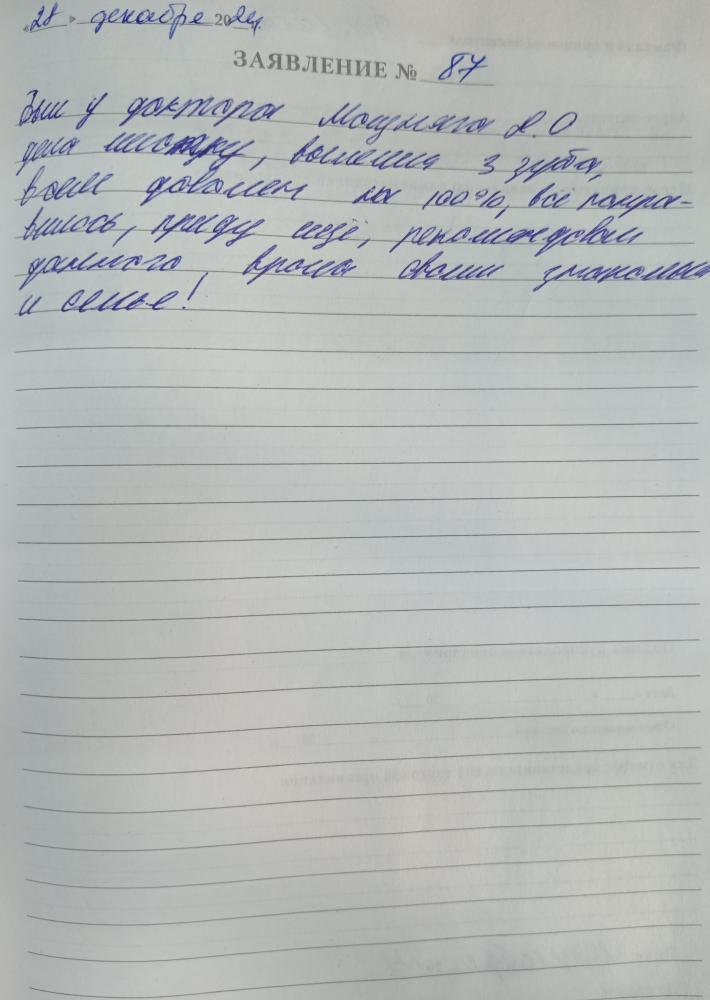 «28» декабре 2024г.
ЗАЯВЛЕНИЕ № 87
был у доктора Мощняга Д.О
дела чистку, вылечил 3 зуба,
всем доволен на 100%, всё понра-
вилось, приеду ещё, рекомендовал
данного врача своим знакомым
и семье!